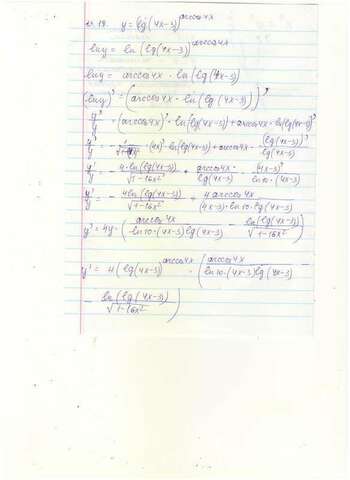 y = lg(4x-3)^arccos4x
lny = ln(lg(4x-3))^arccos4x
lny = arccos4x · ln(lg(4x-3))
(lny)' = (arccos4x · ln(lg(4x-3)))'
y'/y = (arccos4x)' · ln(lg(4x-3)) + arccos4x · ln(lg(4x-3))'
(4x)' · ln(lg(4x-3)) + arccos4x · (lg(4x-3))'/lg(4x-3)
y'/y = - 4·ln(lg(4x-3))/√1-16x² + arccos4x/lg(4x-3) · (4x-3)'/ln10·(4x-3)
y'/y = - 4ln(lg(4x-3))/√1-16x² + 4arccos4x/(4x-3)·ln10·lg(4x-3)
y' = 4y·(arccos4x/ln10·(4x-3)lg(4x-3) - ln(lg(4x-3))/√1-16x²)
y' = 4(lg(4x-3))^arccos4x · (arccos4x/ln10·(4x-3)lg(4x-3)
- ln(lg(4x-3))/√1-16x²)